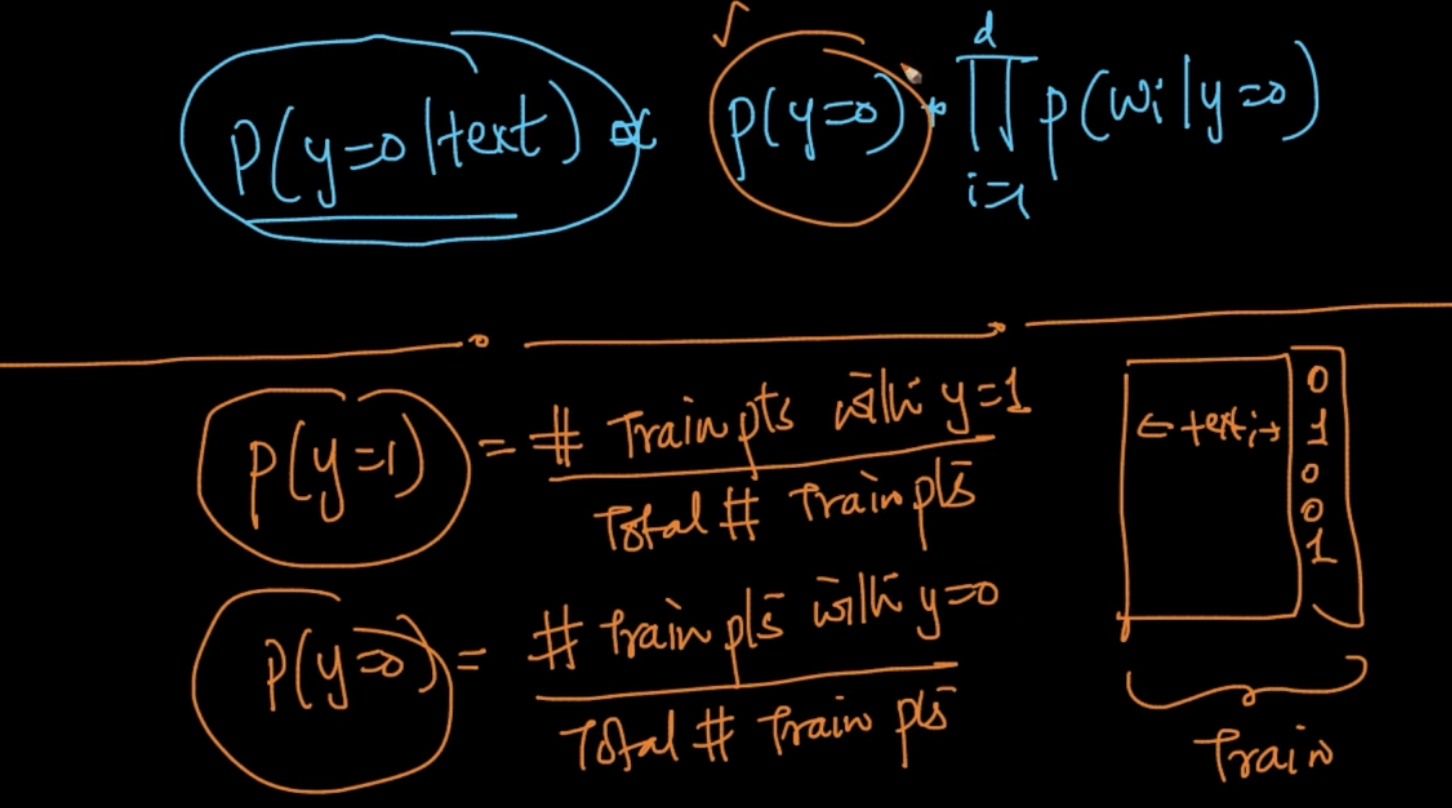 P(y=0|text) ∝ p(y=0) * ∏_{i=1}^{d} p(wi|y=0)
p(y=1) = # Train pts with y=1 / Total # Train pts
P(y=0) = # Train pts with y=0 / Total # Train pts
← text_i →
0
1
0
0
1
Train